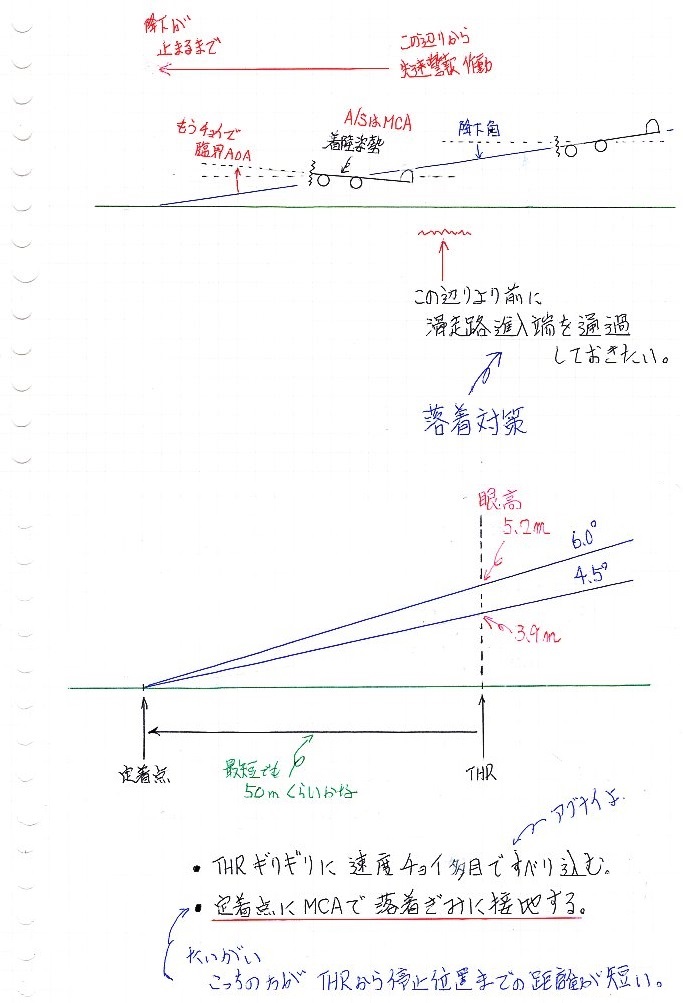 降下が
止まるまで
この辺りから
失速警報作動
もうチョイで
臨界AOA
A/SはMCA
着陸姿勢
降下角
この辺りより前に
滑走路進入端を通過
しておきたい。
落着対策
眼高
5.2m
6.0°
4.5°
3.9m
定着点
最短でも
50mくらいかな
THR
アブナイよ
• THRギリギリに速度チョイ多目ですべり込む。
• 定着点にMCAで落着ぎみに接地する。
たいがい
こっちの方が THRから停止位置までの距離が短い。